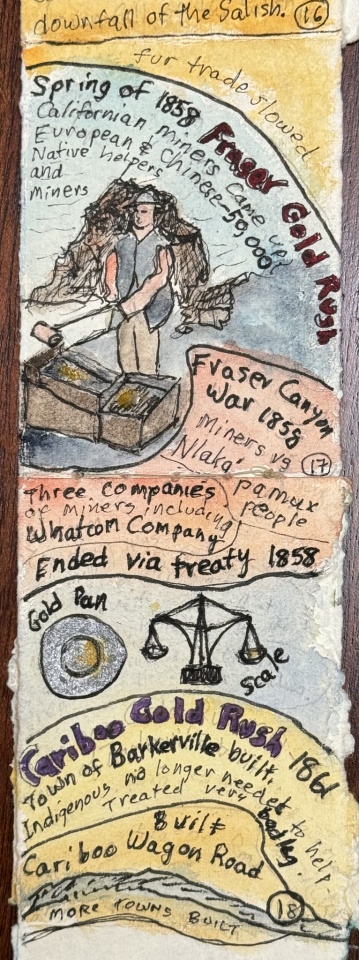 downfall of the Salish. 16
fur trade slowed
Spring of 1858
Californian miners came up
European & Chinese - 50,000
Native helpers
and
miners
Fraser Gold Rush
Fraser Canyon
War 1858
Miners vs
Nlaka'
17
pamux
people
Three Companies
of miners including
Whatcom Company
Ended via treaty 1858
Gold Pan
Scale
Cariboo Gold Rush 1861
Town of Barkerville built.
Indigenous no longer needed to help.
Treated very badly.
Built
Cariboo Wagon Road
18
MORE TOWNS BUILT